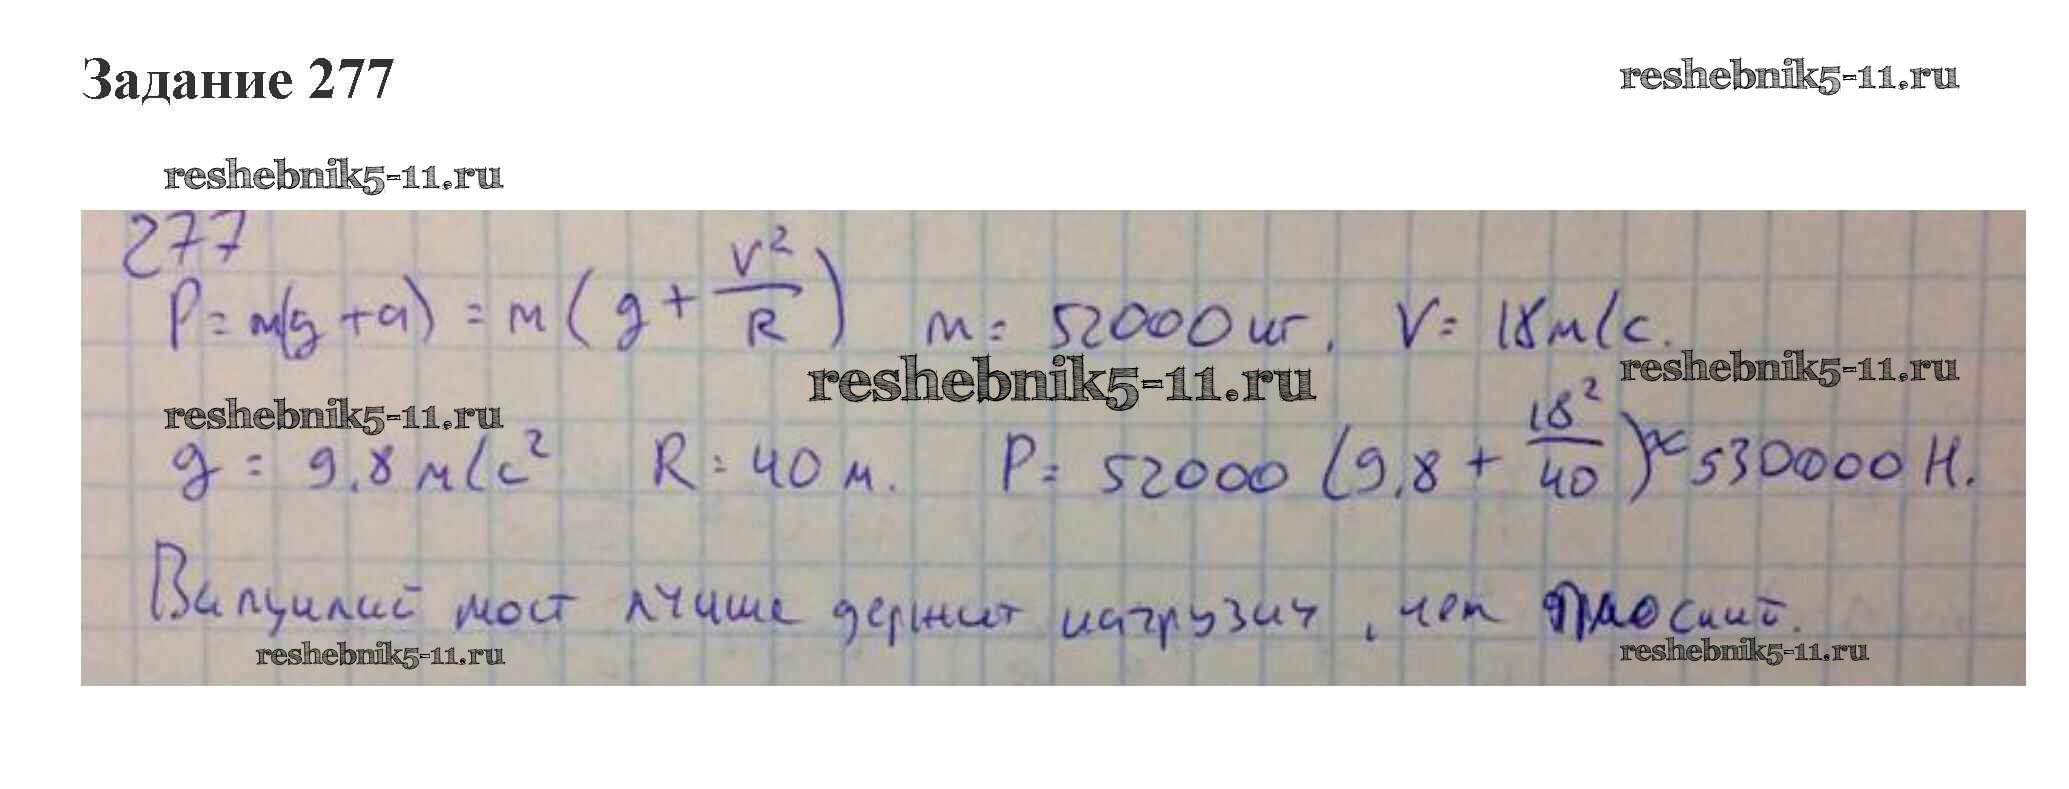 Задание 277
reshebnik5-11.ru
reshebnik5-11.ru
277
P = m(g + a) = m ( g + V² / R ) m = 52000 кг. V = 18 м/с.
reshebnik5-11.ru
reshebnik5-11.ru
reshebnik5-11.ru
g = 9,8 м/с² R = 40 м. P = 52000 (9,8 + 18² / 40 ) ≈ 530000 Н.
Выпуклый мост лучше держит нагрузку, чем плоский.
reshebnik5-11.ru
reshebnik5-11.ru